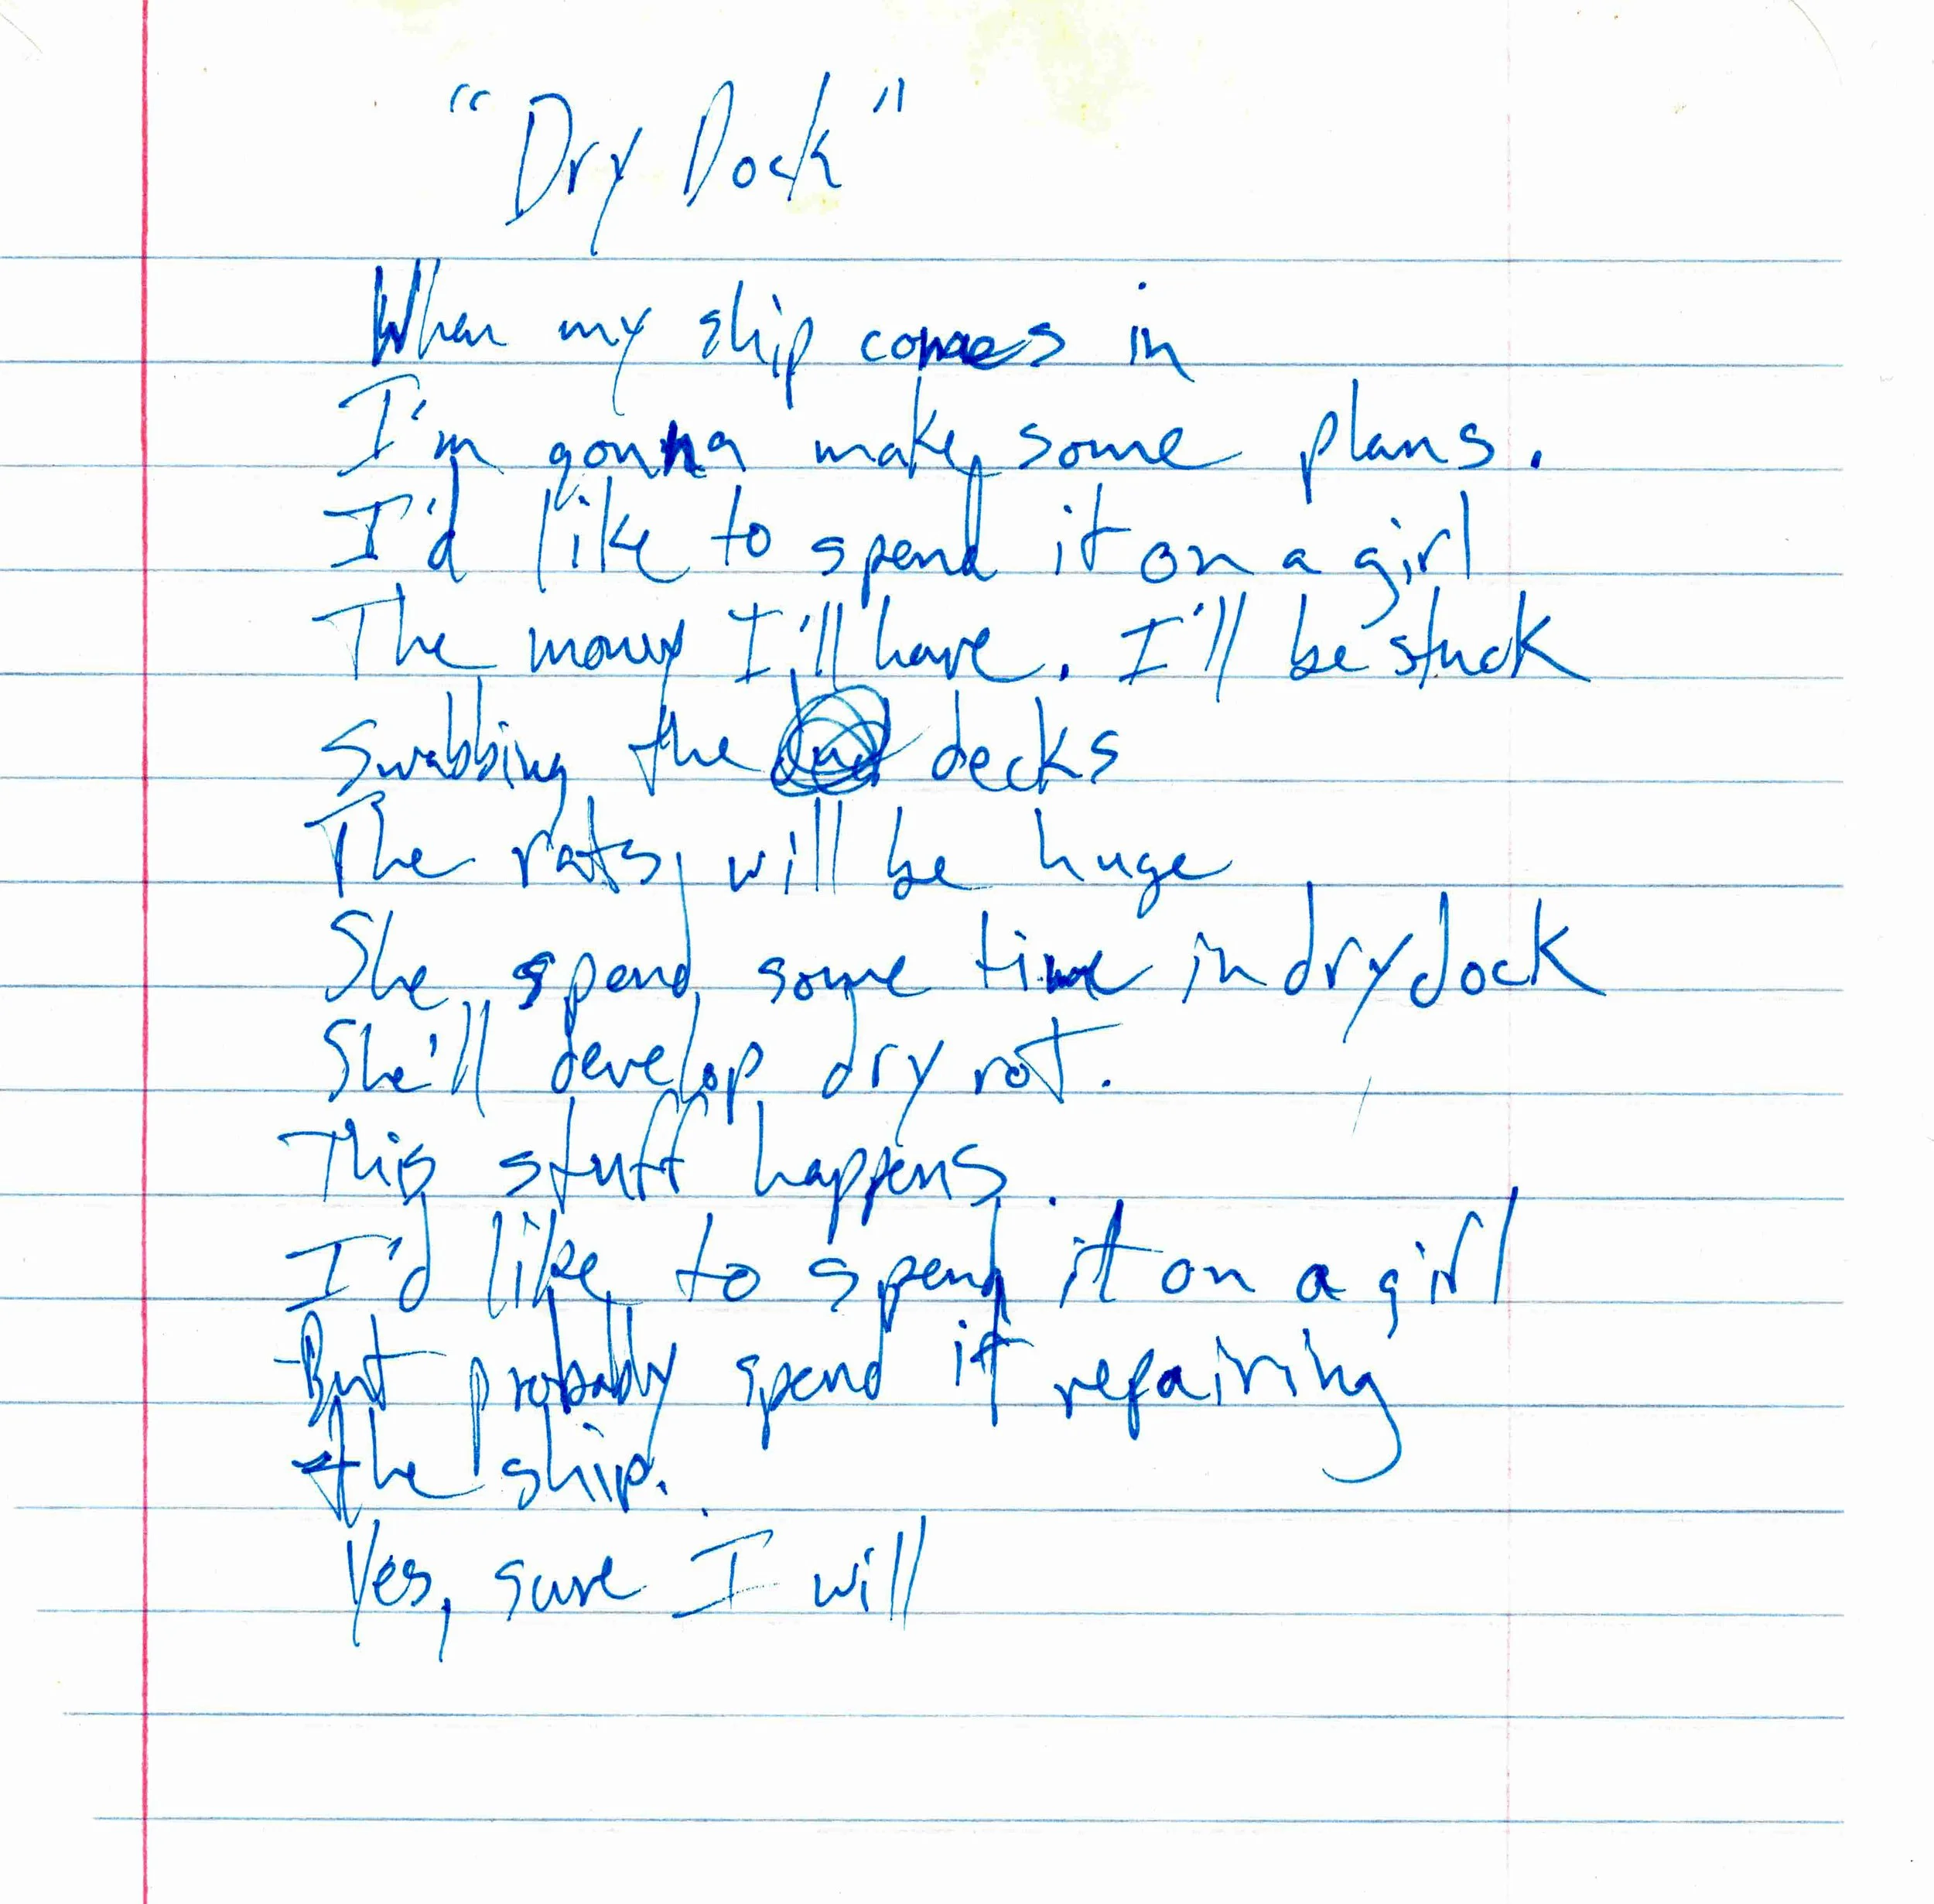 "Dry Dock"
When my ship comes in
I'm gonna make some plans.
I'd like to spend it on a girl
The money I'll have. I'll be stuck
swabbing the decks
The rats will be huge
She spend some time in drydock
She'll develop dry rot.
This stuff happens.
I'd like to spend it on a girl
But probably spend it repairing
the ship.
Yes, sure I will